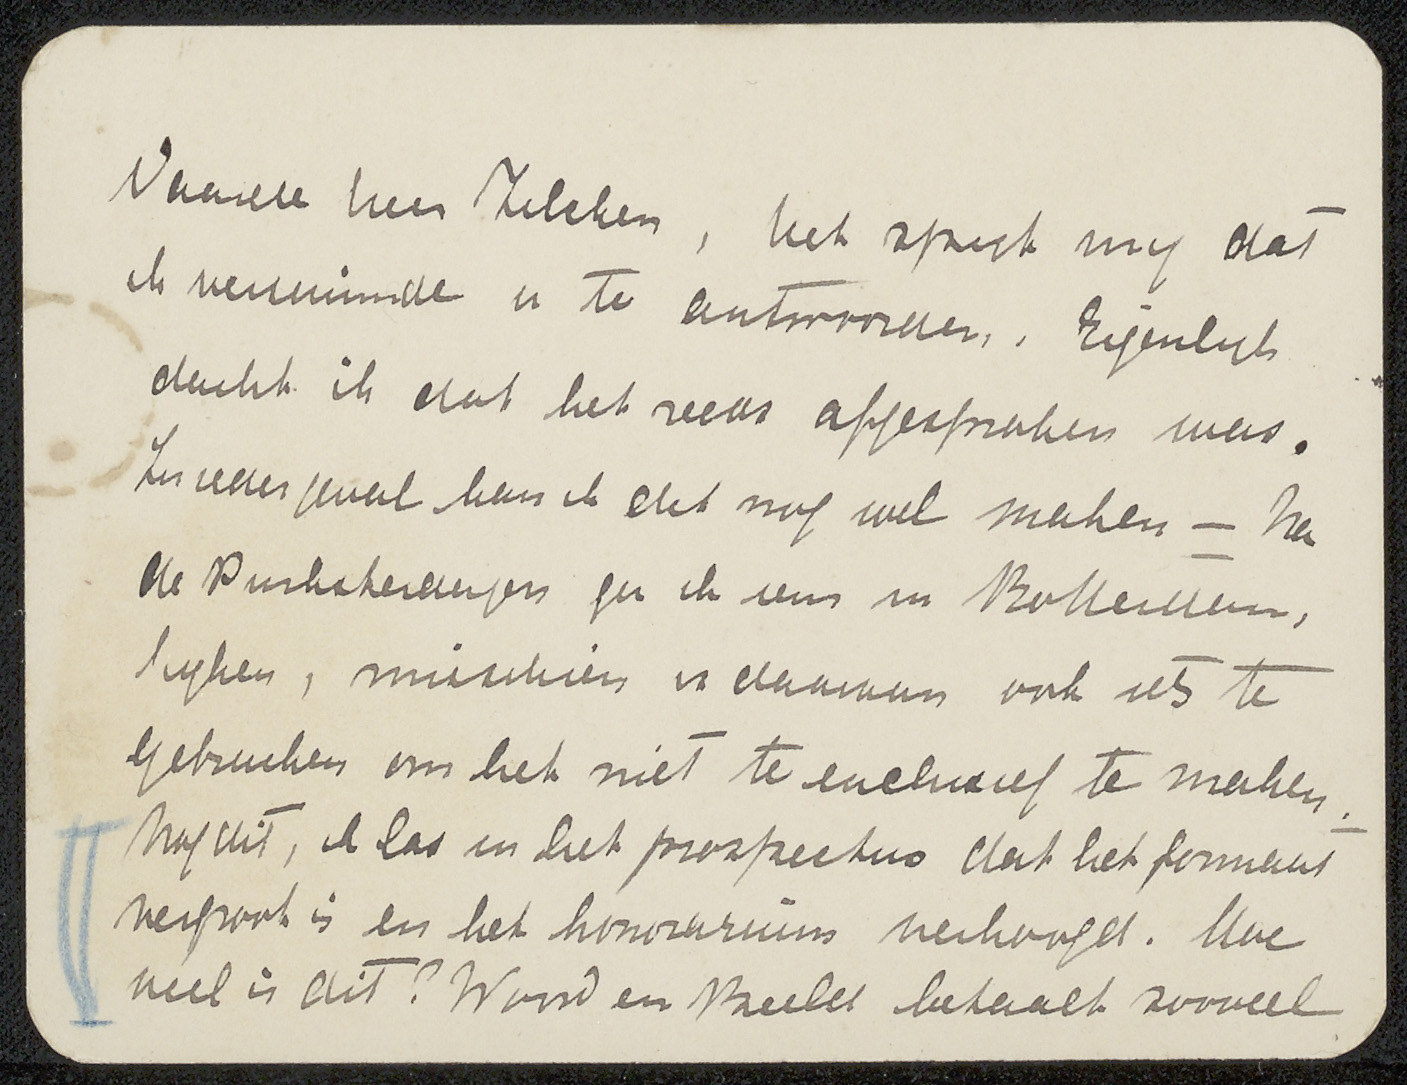 Waarde heer Zilcken, het spijt my dat
ik verzuimde u te antwoorden. Eigenlyk
dacht ik dat het reeds afgesproken was.
In ieder geval kan ik dit nog wel maken — Na
de Pinksterdagen ga ik eens in Rotterdam,
kyken, misschien is daarvan ook iets te
gebruiken om het niet te exclusief te maken.
Nog dit, ik las in het prospectus dat het formaat
vergroot is en het honorarium verhoogd. Hoe
veel is dit? Woord en Beeld betaalt zooveel